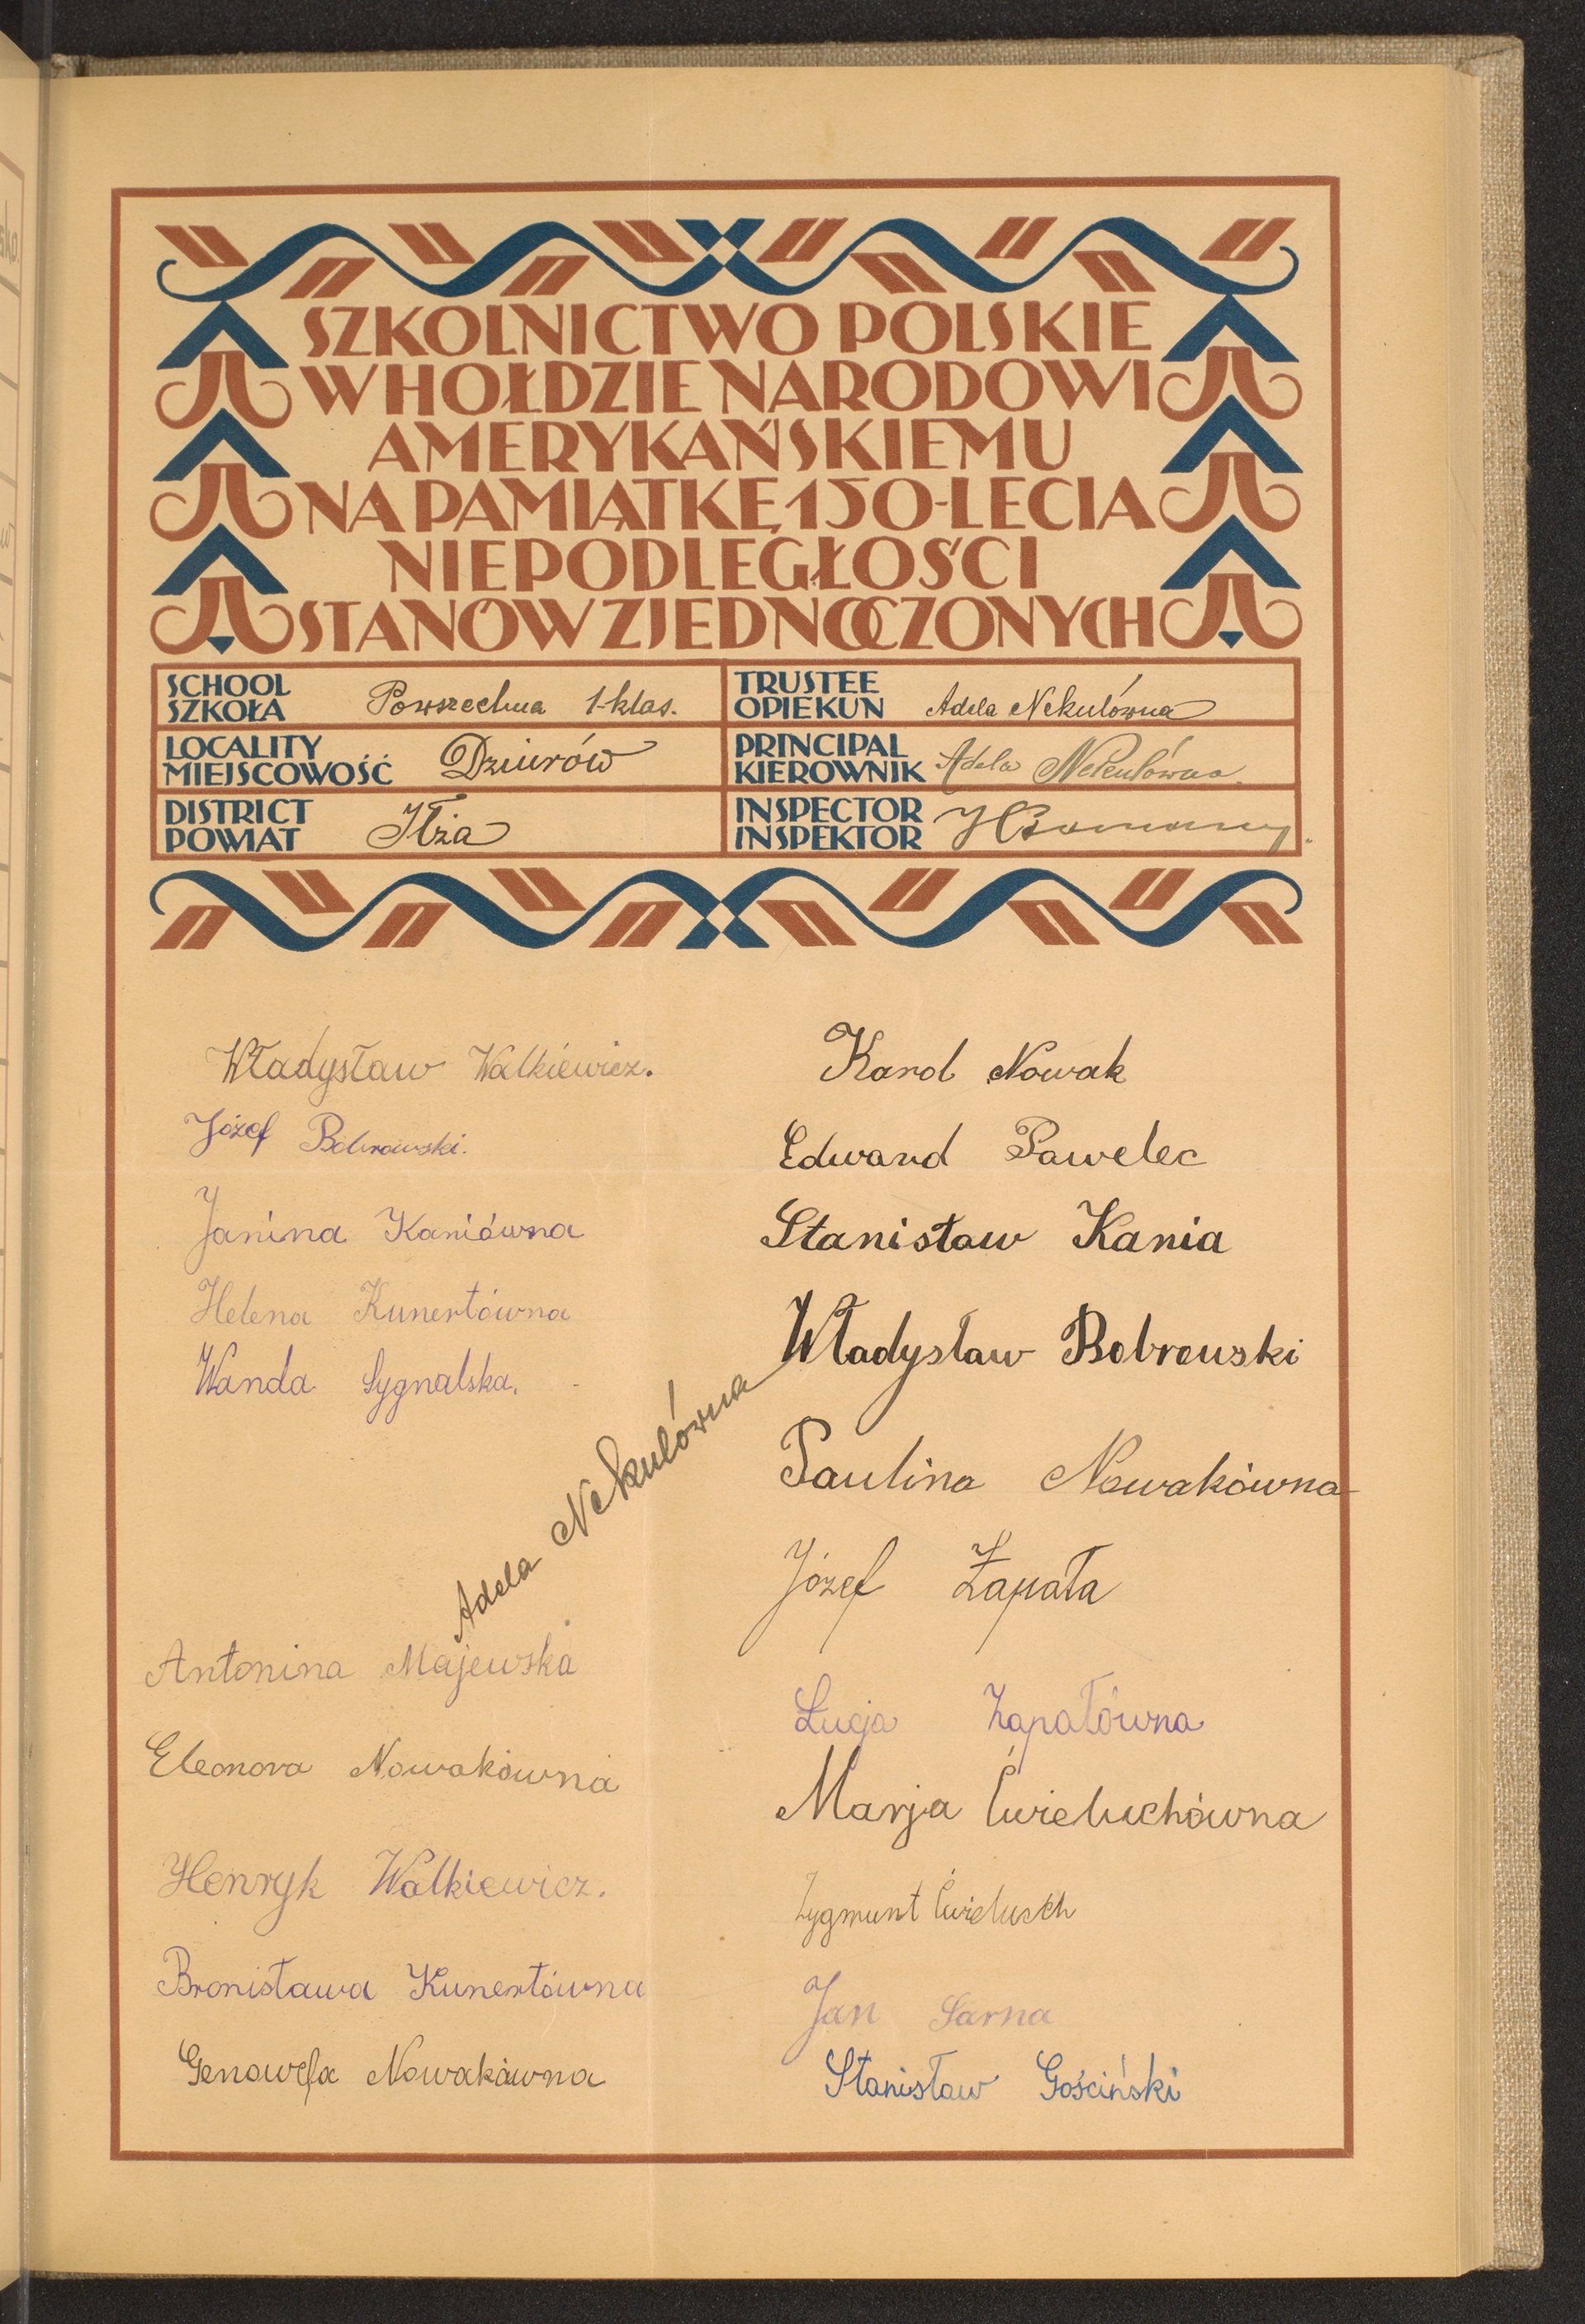 SZKOLNICTWO POLSKIE
W HOŁDZIE NARODOWI
AMERYKAŃSKIEMU
NA PAMIĄTKĘ 150-LECIA
NIEPODLEGŁOŚCI
STANÓW ZJEDNOCZONYCH
SCHOOL
SZKOŁA
Powszechna 1-klas.
TRUSTEE
OPIEKUN
Adela Nekulówna
LOCALITY
MIEJSCOWOŚĆ
Dziurów
PRINCIPAL
KIEROWNIK
Adela Nekulówna
DISTRICT
POWIAT
Iłża
INSPECTOR
INSPEKTOR
Władysław Walkiewicz.
Józef Bobrowski.
Janina Kaniówna
Helena Kunertówna
Wanda Sygnalska.
Adela Nekulówna
Antonina Majewska
Eleonora Nowakówna
Henryk Walkiewicz.
Bronisława Kunertówna
Genowefa Nowakówna
Karol Nowak
Edward Pawelec
Stanisław Kania
Władysław Bobrowski
Paulina Nowakówna
Józef Zapała
Łucja Zapałówna
Marja Ćwieluchówna
Zygmunt Ćwieluch
Jan Sarna
Stanisław Gościński